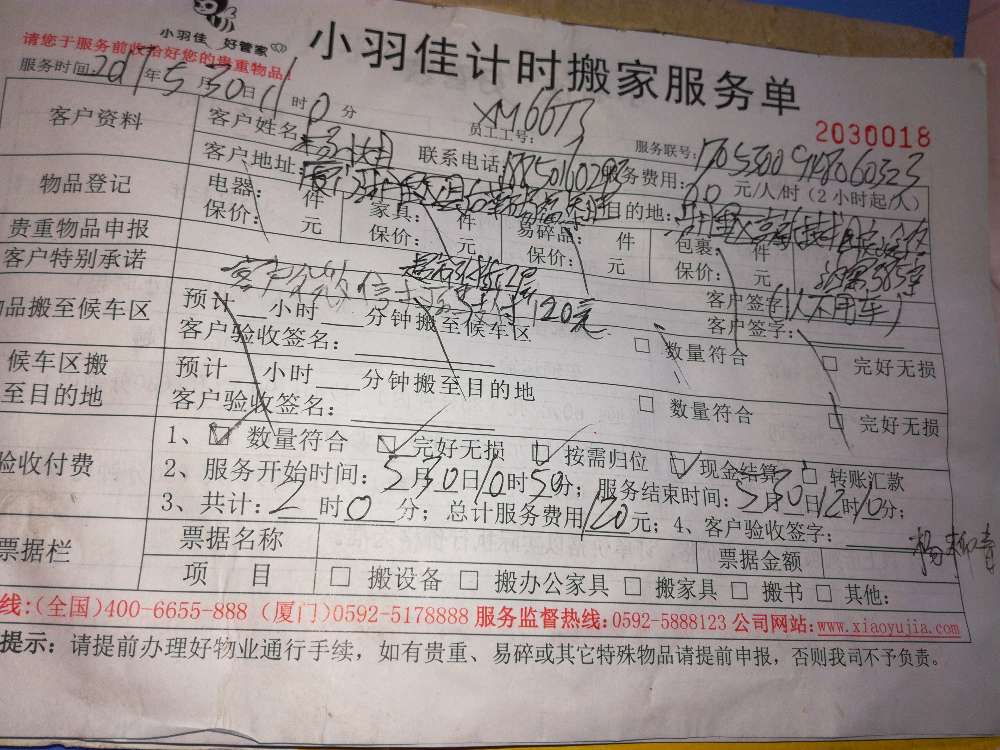 小羽佳 好管家
小羽佳计时搬家服务单
请您于服务前收拾好您的贵重物品!
2030018
服务时间: 2017年5月30日11时0分
员工工号: XM66T3
服务联号: 170530091186060323
客户资料
客户姓名:
联系电话: 18750160293
服务费用: 30 元/人/时 (2小时起/人)
客户地址:
目的地:
物品登记
电器: 件
家具: 件
易碎品: 件
包裹: 件
保价: 元
保价: 元
保价: 元
保价: 元
贵重物品申报
客户签字: (以不用车)
客户特别承诺
120元
客户签字:
物品搬至候车区
预计 小时 分钟搬至候车区
客户验收签名:
□ 数量符合
□ 完好无损
候车区搬
至目的地
预计 小时 分钟搬至目的地
客户验收签名:
□ 数量符合
□ 完好无损
验收付费
1、☑ 数量符合 ☑ 完好无损 ☑ 按需归位 ☑ 现金结算 □ 转账汇款
2、服务开始时间: 5月30日10时50分; 服务结束时间: 5月30日12时10分;
3、共计: 2时0分; 总计服务费用120元; 4、客户验收签字:
票据栏
票据名称
票据金额
项 目
□ 搬设备 □ 搬办公家具 □ 搬家具 □ 搬书 □ 其他:
线:(全国)400-6655-888 (厦门)0592-5178888 服务监督热线:0592-5888123 公司网站:www.xiaoyujia.com
提示: 请提前办理好物业通行手续,如有贵重、易碎或其它特殊物品请提前申报,否则我司不予负责。